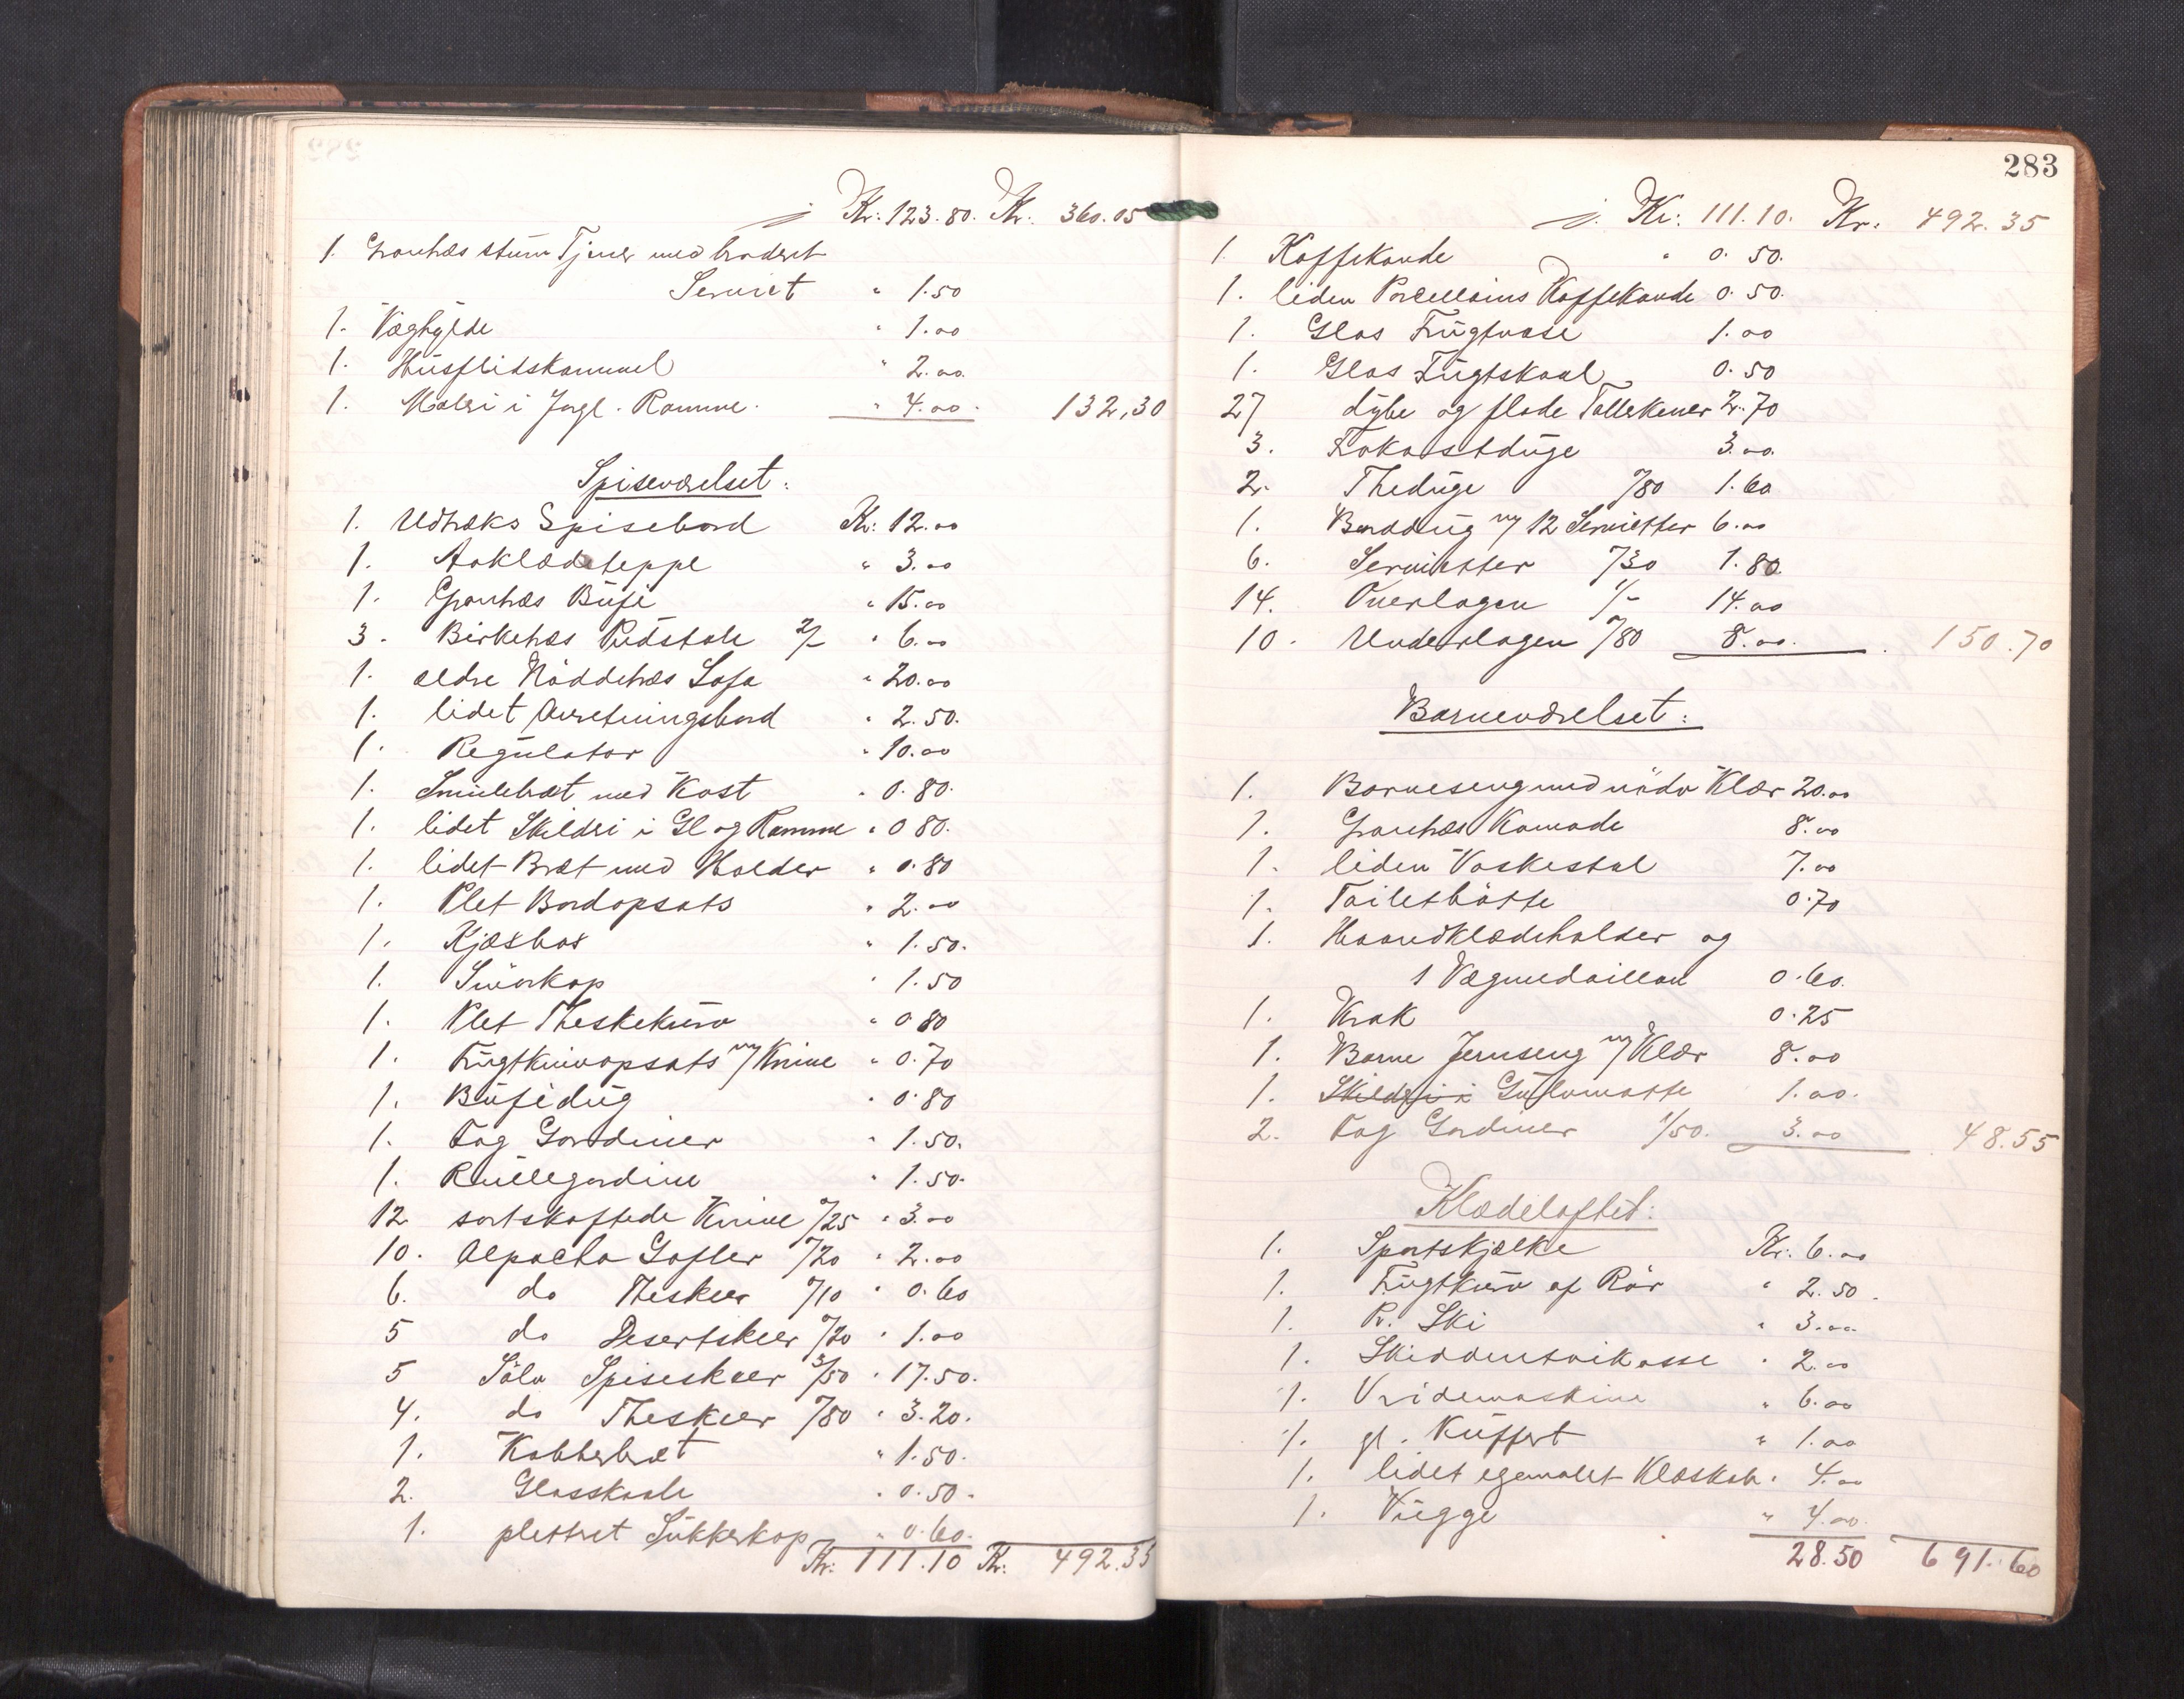 j Kr: 123.80. Kr. 360.05
1. Grantræs stum Tjener med broderet
Serviet " 1.50
1. Væghylde " 1.00
1. Husflidskammel " 2.00
1. Maleri i Forgl. Ramme. " 4.00. 132,30
Spiseværelset:
1. Udtræks Spisebord Kr: 12.00
1. Aaklædeteppe " 3.00
1. Grantræs Büfé " 15.00
3. Birketræs Pidstole 2/- " 6.00
1. ældre Nöddetræs Sofa " 20.00
1. lidet Anretningsbord " 2.50.
1. Regulator " 10.00
1. Smulebræt med Kost " 0.80.
1. lidet Skilderi i Gl og Ramme " 0 80.
1. lidet Bræt med Holder " 0.80
1. Plet Bordopsats " 2.00
1. Kjæxbox " 1.50.
1. Smörkop " 1.50
1. Plet Theskekurv " 0 80
1. Frugtknivopsats m/Knive " 0.70
1. Büfédug " 0.80
1. Fag Gardiner " 1.50.
1. Rullegardine " 1.50.
12 sortskaftede Knive "/25 " 3.00
10. Alpacka Gafler "/20 " 2.00
6. do Theskeer "/10 " 0.60
5 do Desertskeer "/20 " 1.00
5 Sölv Spiseskeer 3/50 " 17.50.
4. do Theskeer "/80 " 3.20.
1. Kobberbræt " 1.50.
2. Glasskaale " 0.50.
1. plettret Sukkerkop " 0.60.
Kr: 111.10 Kr: 492.35
283
j. Kr: 111.10. Kr. 492.35
1. Kaffekande " 0.50.
1. liden Porcellains Kaffekande 0.50.
1. Glas Frugtvase 1.00
1. Glas Frugtskaal 0.50
27 dybe og flade Tallerkener 2.70
3. Frokostduge 3.00
2. Theduge "/80 1.60
1. Borddug m/ 12 Servietter 6.00
6. Servietter "/30 1.80.
14. Overlagen 1/- 14.00
10. Underlagen "/80 8.00. 150.70
Barneværelset:
1. Barneseng med nödv Klær 20.00
1. Grantræs Komode 8.00
1. liden Vaskestol 7.00
1. Toiletbötte 0.70
1. Haandklædeholder og
1 Vægmedaillon 0.60.
1. Krak 0.25
1. Barne Jernseng m/ Klær 8.00
1. Skilderi i Gulvmatte 1.00.
2. Fag Gardiner 1/50. 3.00 48.55
Klædeloftet:
1. Sportskjælke Kr. 6.00
1. Frugtkurv af Rör " 2.50.
1. P. Ski " 3.00
1. Skiddentöikasse " 2.00
1. Vridemaskine " 6.00
1. gl. Kuffert " 1.00
1. lidet egemalet Klæsksk. " 4.00
1. Vugge " 4.00.
28.50 691.60